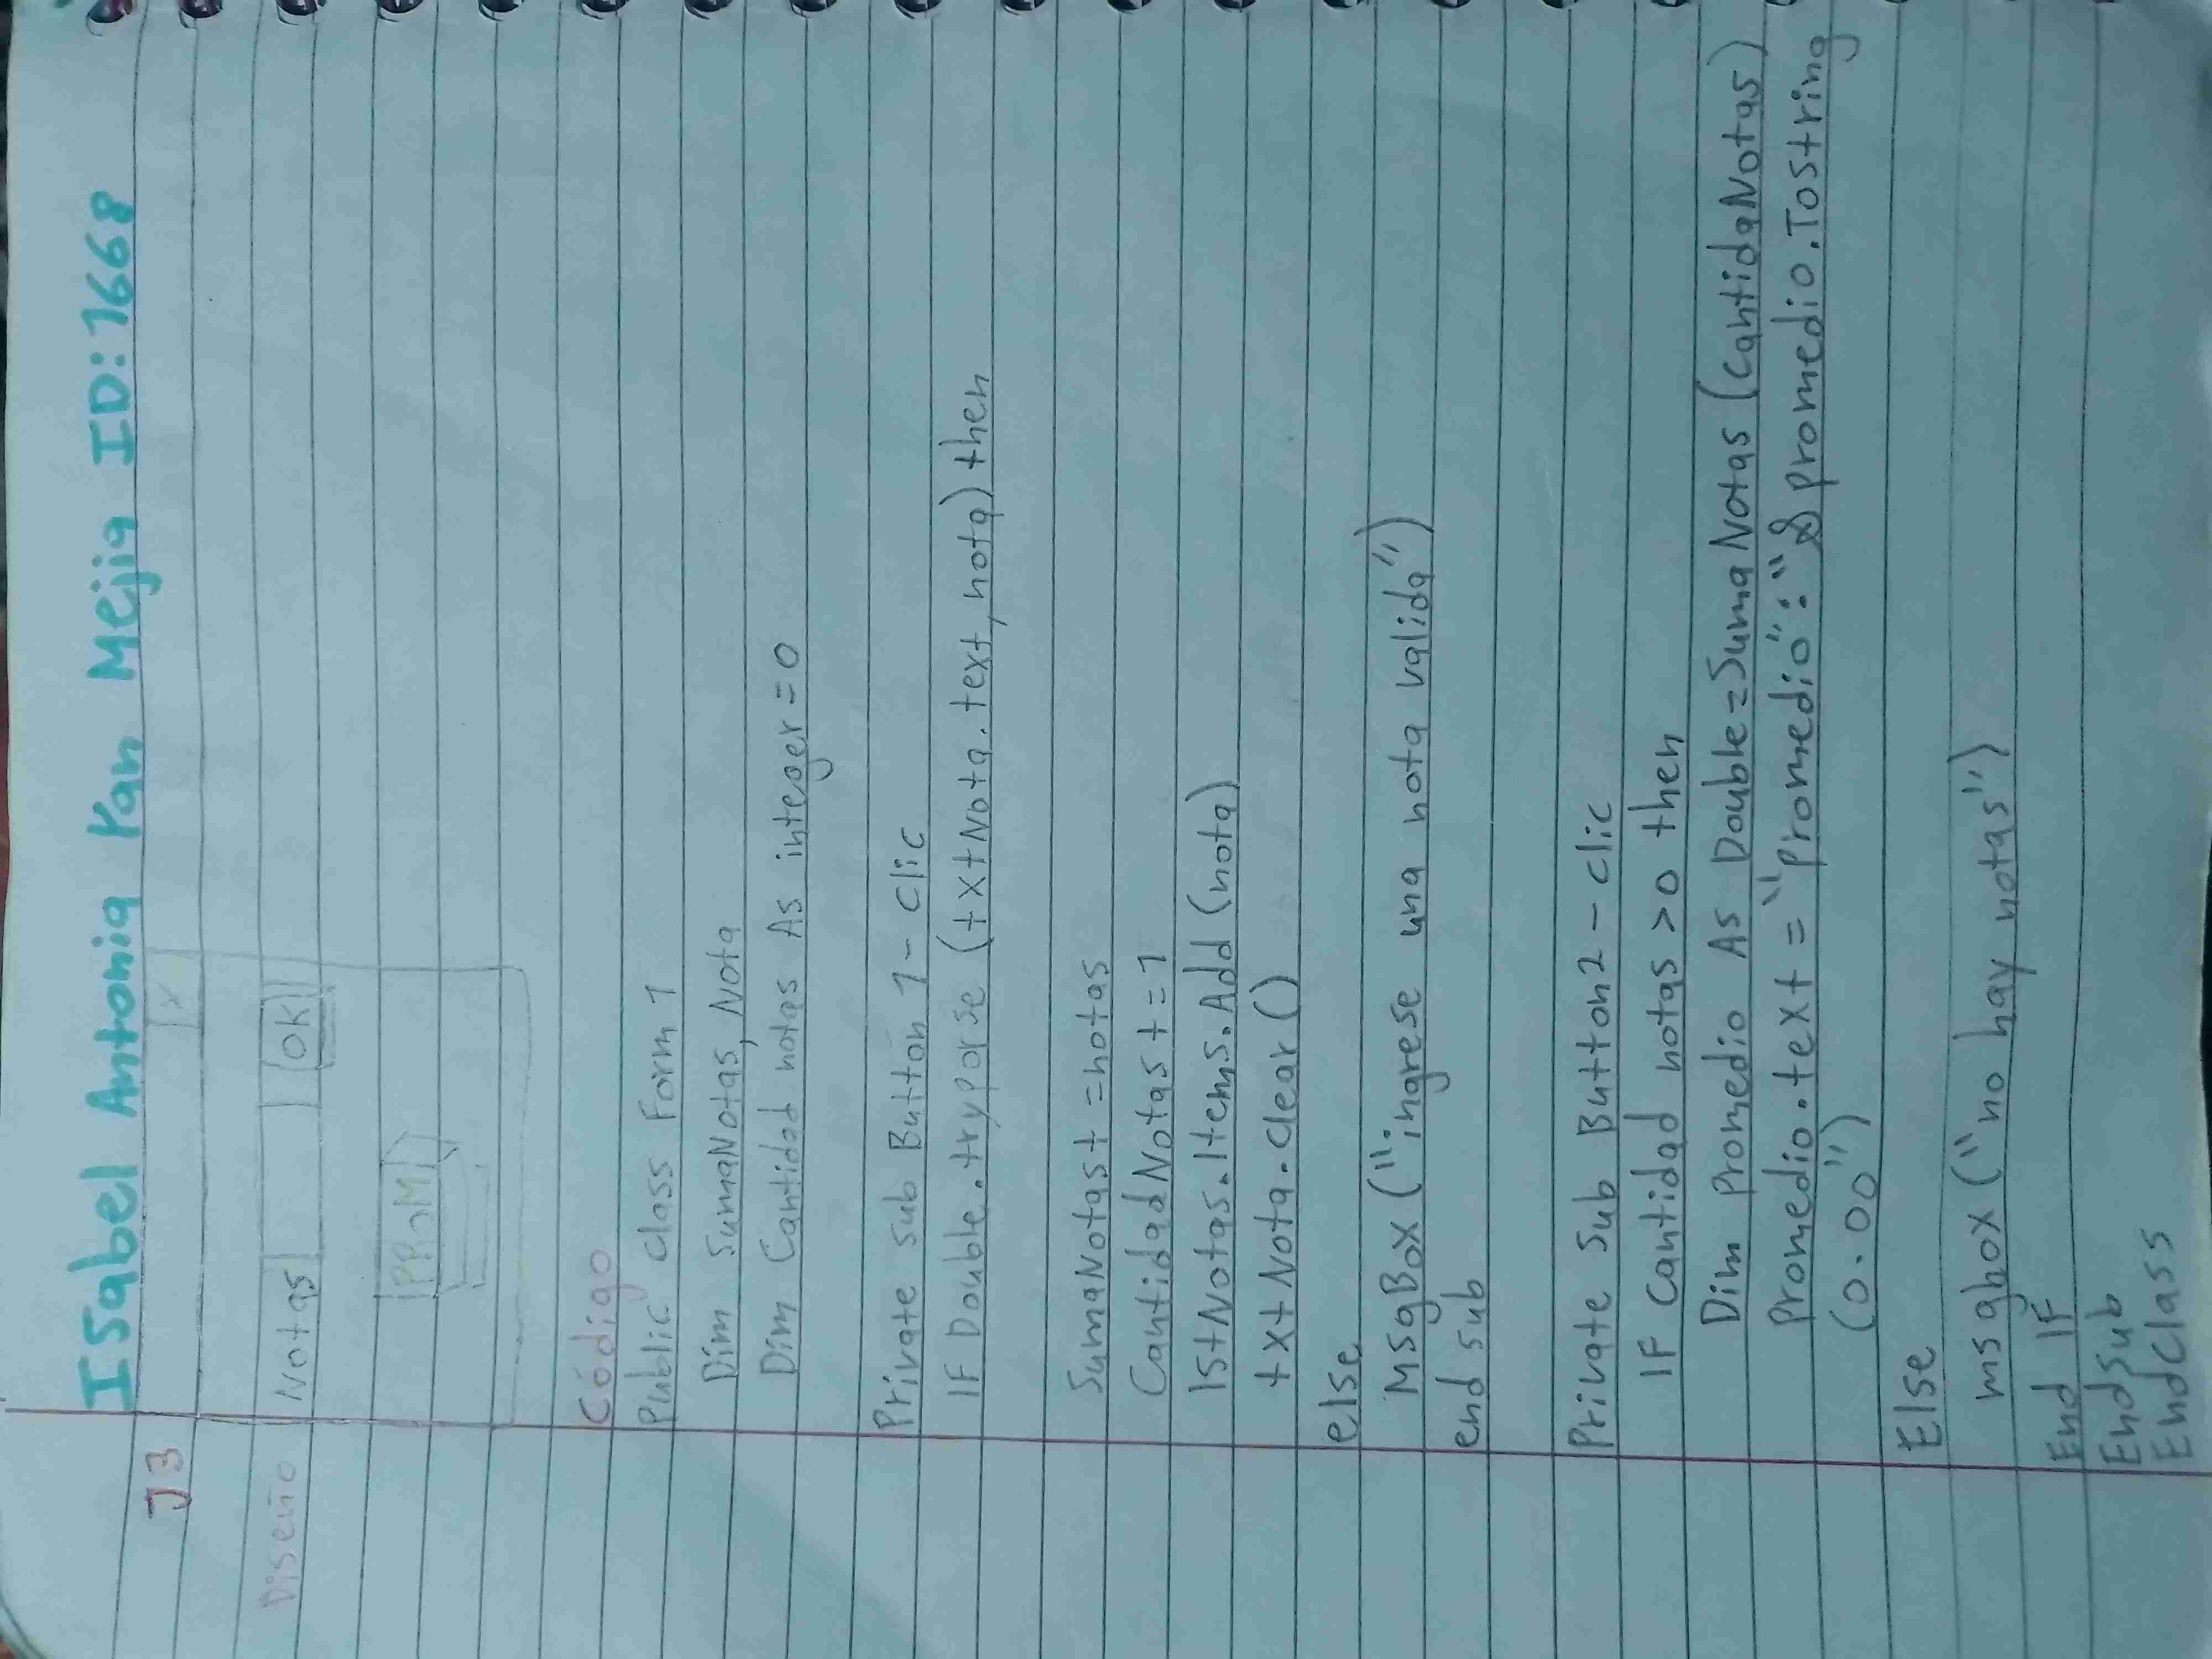 ISabel Antonia Pan Mejia ID:1668
J3
Diseño
Notas OK
PRoM
Código
Public class Form 1
Dim SumaNotas, Nota
Dim Cantidad notas As integer = 0
Private sub Button 1 - clic
IF Double.tryparse (txtNota.text, nota) then
SumaNotas += notas
CantidadNotas += 1
lstNotas.Items.Add (nota)
txtNota.clear ()
else
MSgBox ("ingrese una nota valida")
end sub
Private Sub Button2 - clic
IF Cantidad notas > 0 then
Dim Promedio As Double = SumaNotas (CantidaNotas)
Promedio.text = "Promedio": " & promedio.Tostring
(0.00")
Else
msgbox ("no hay notas")
End IF
EndSub
EndClass